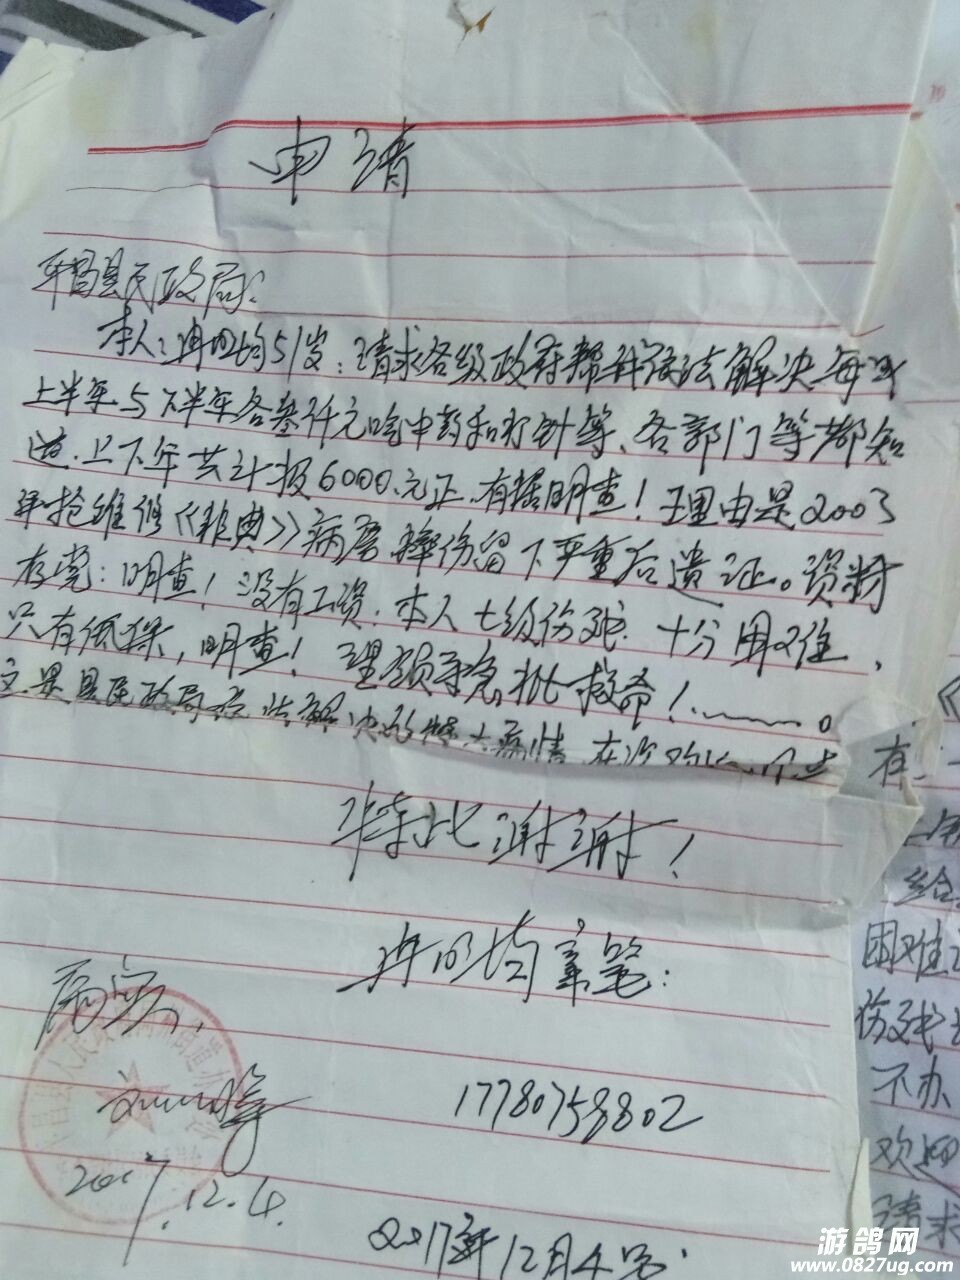 申请
平昌县民政局:
本人:冉明均51岁:请求各级政府帮我设法解决每年
上半年与下半年各叁仟元吃中药和打针等、各部门等都知
道.上下年共计报6000.元正.有据明查!理由是2003
年抢维修《非典》病房 摔伤留下严重后遗证。资料
存莞:明查!没有工资.本人七级伤残.十分困难,
只有低保,明查!望领导急批救命!……。
主.是县民政局 解决 病情 在
特此谢谢!
冉明均亲笔:
属实,
17780758802
2017.12.4.
2017年12月4号.
有
给
困难
伤残
不办
欢迎
请求
游鸽网
www.0827ug.com